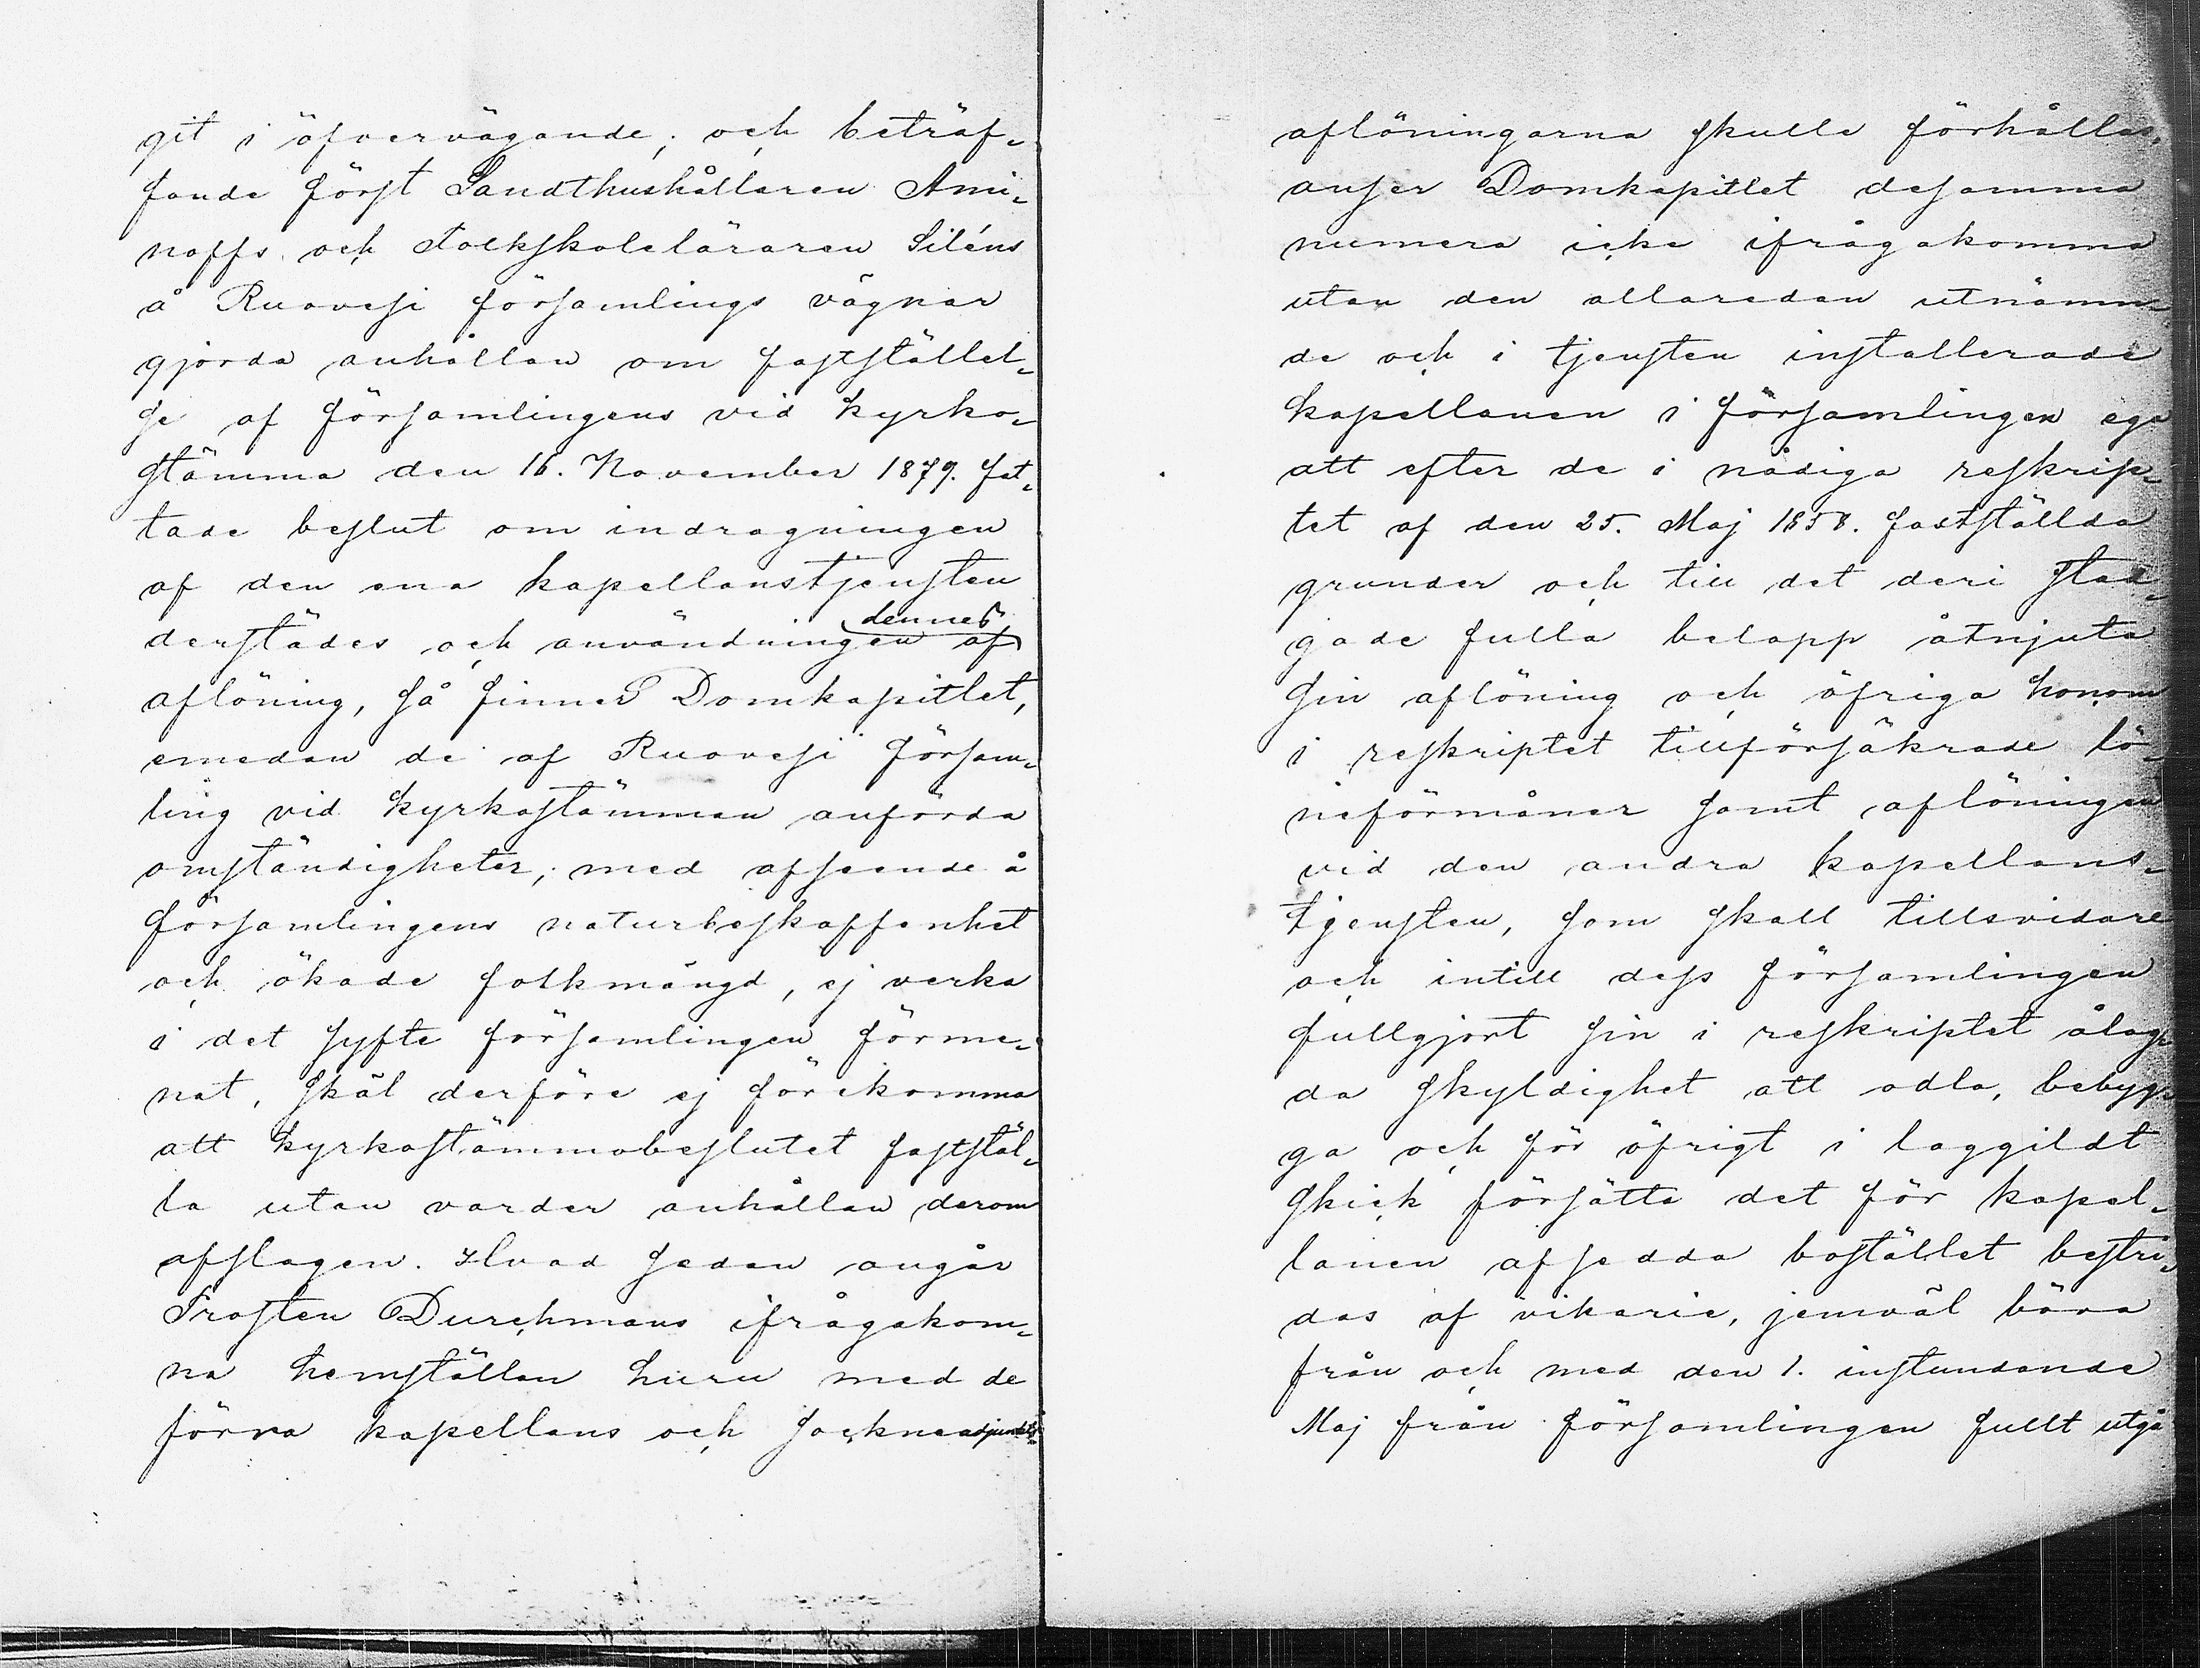 git i öfvervägande; och beträf-
fande först Landthushållaren Ami-
noffs och Folkskoleläraren Siléns
å Ruovesi församlings vägnar
gjorda anhållan om faststäl­lel-
se af församlingens vid kyrko-
stämma den 16. November 1879. fat-
tade beslut om indragningen
af den ena kapellanstjensten
derstädes och användningen af dennes
aflöning, så finner Domkapitlet,
emedan de af Ruovesi försam-
ling vid kyrkostämman anförda
omständigheter, med afseende å
församlingens naturbeskaffenhet
och ökade folkmängd, ej verka
i det syfte församlingen förme-
nat, skäl derföre ej förekomma
att kyrkostämmobeslutet faststäl-
la utan varder anhållan derom
afslagen. Hvad sedan angår
Prosten Durchmans ifrågakom-
na hemställan huru med de
förra kapellans och sockneadjunkts-
aflöningarna skulle förhållas,
anser Domkapitlet desamma
numera icke ifrågakomma
utan den allaredan utnämn-
de och i tjensten installerade
kapellanen i församlingen ega
att efter de i nådiga reskrip-
tet af den 25. Maj 1858. fastställda
grunder och till det deri stad-
gade fulla belopp åtnjuta
sin aflöning och öfriga honom
i reskriptet tillförsäkrade lö-
neförmåner samt aflöningen
vid den andra kapellans-
tjensten, som skall tillsvidare
och intill dess församlingen
fullgjort sin i reskriptet ålag-
da skyldighet att odla, bebyg-
ga och för öfrigt i laggildt
skick försätta det för kapel-
lanen afsedda bostället bestri-
das af vikarie, jemväl böra
från och med den 1. instundande
Maj från församlingen fullt utgå